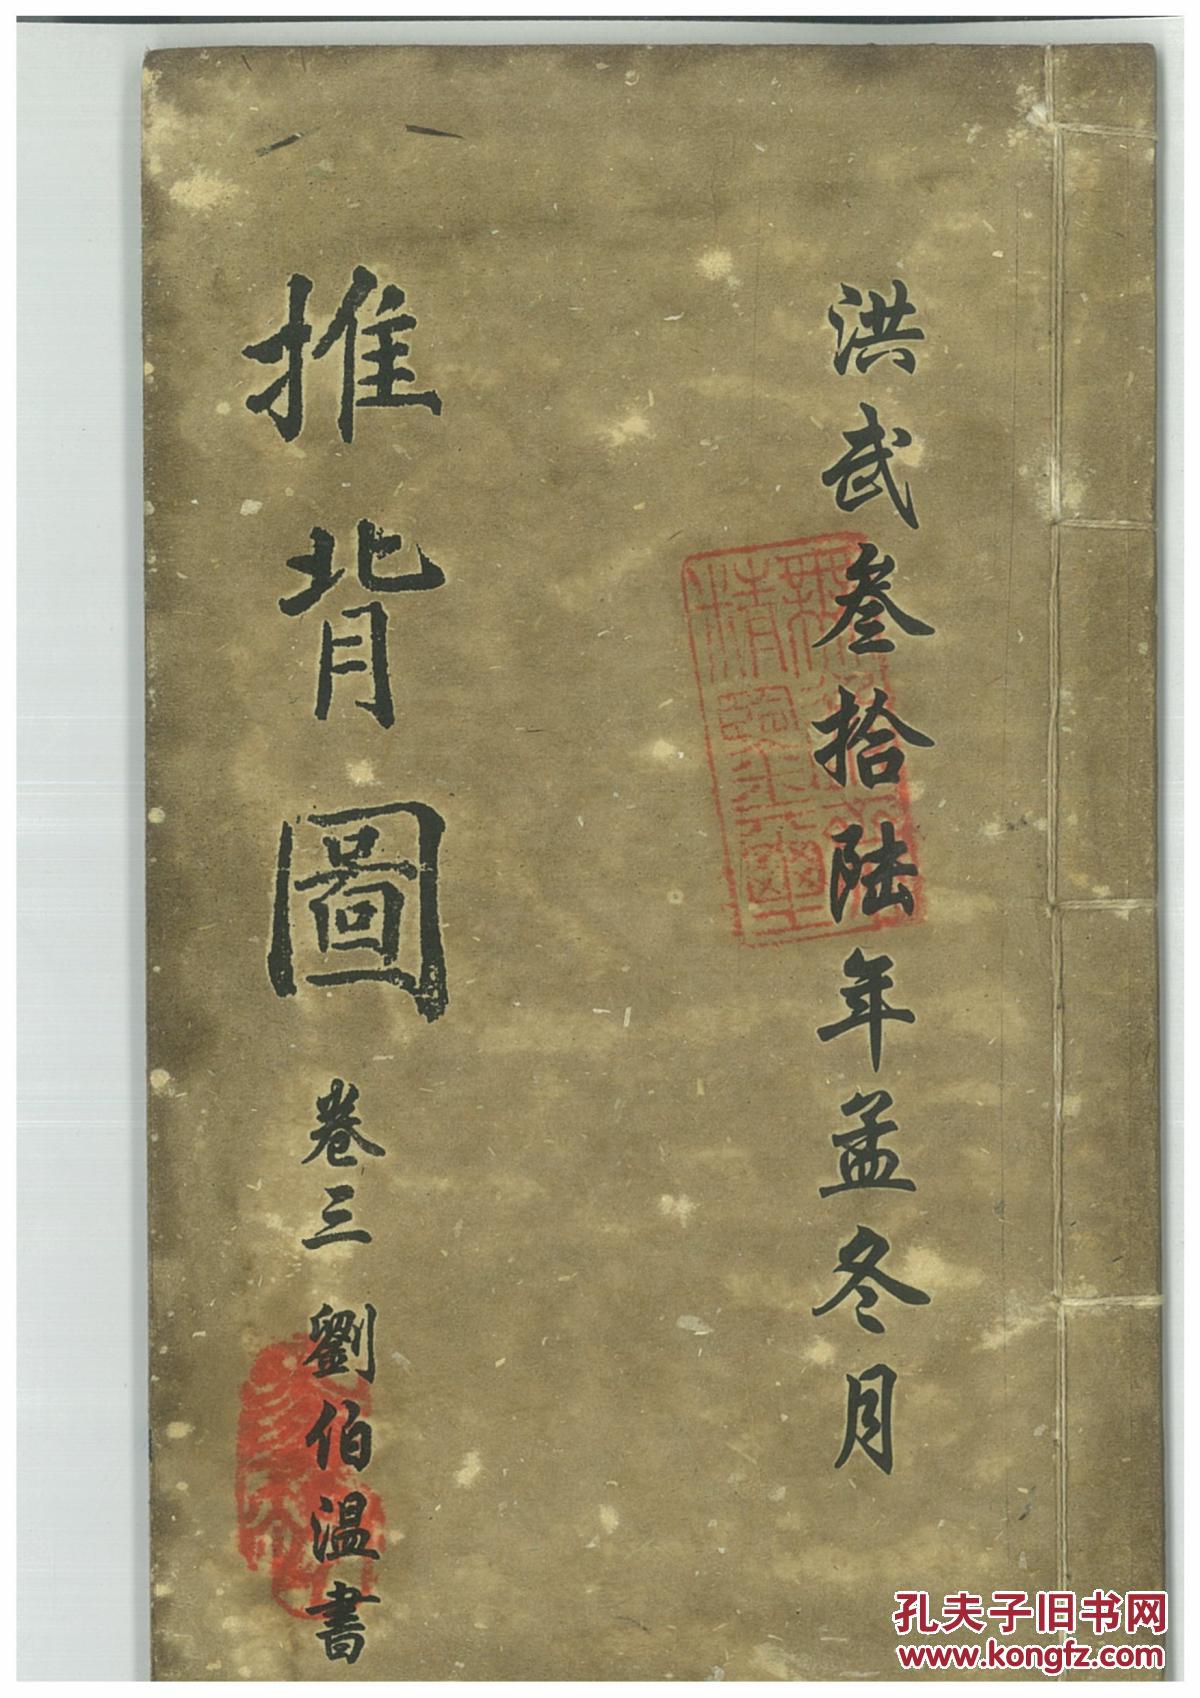 洪武叁拾陆年孟冬月
推背圖 卷三 劉伯温書
孔夫子旧书网
www.kongfz.com